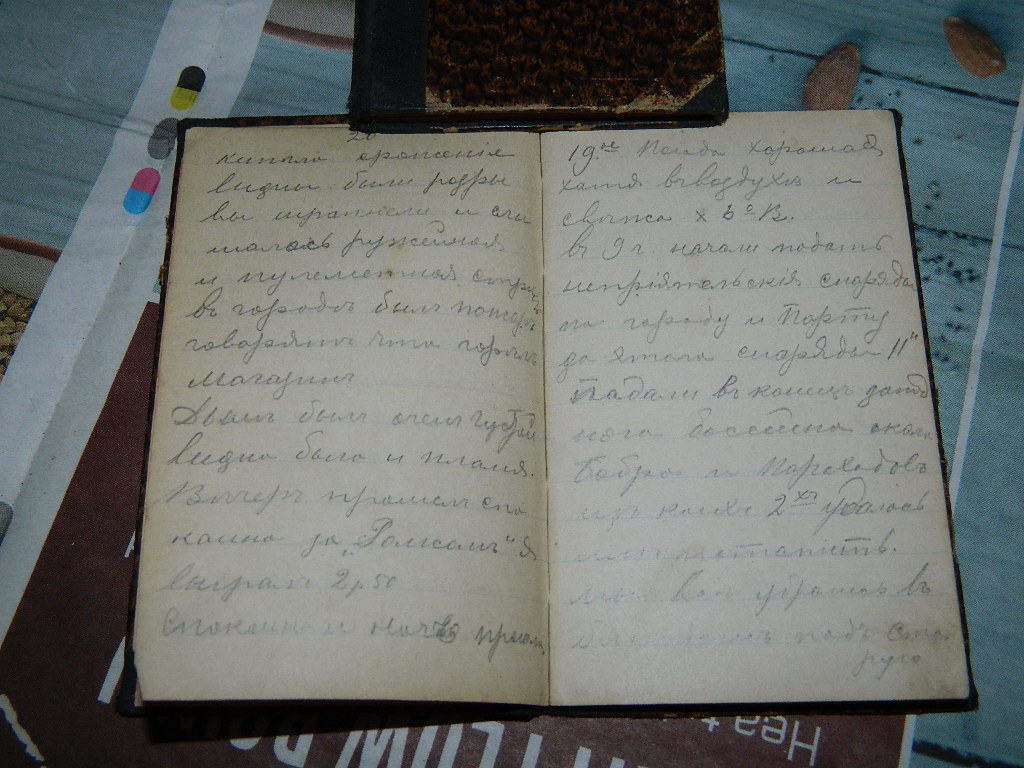 20
кипело сраженіе
видны были разры
вы шрапнели и слы
шалась ружейная
и пулеметная стрѣл
въ городѣ былъ пожаръ
говорятъ что горѣлъ
магазинъ
Дымъ былъ очень густой
видно было и пламя.
Вечеръ прошелъ спо
каино за „Рамсомъ" я
выграл 2 р 50
Спокаино и ночь прошл
19го Погода хорошая
хатя въ воздухѣ и
свѣжо х 6° В.
въ 9 г. начали подать
непріятельскія снаряды
по городу и Порту
до этого снаряды 11"
Падали въ конецъ
нога бассейна около
Бобра и Пароходовъ
изъ коихъ 2хъ удалось
имъ потапить.
мы все убрались въ
подъ Стар